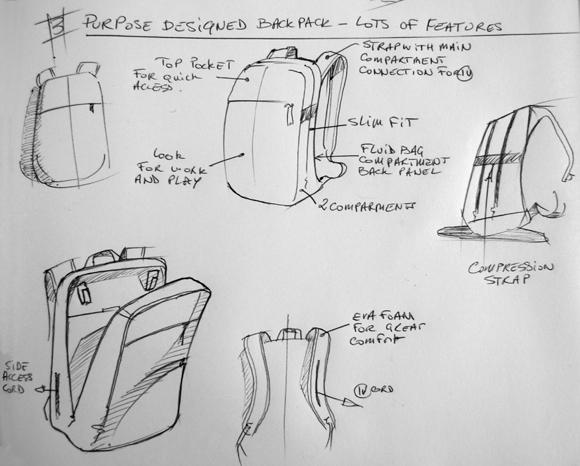 3 PURPOSE DESIGNED BACKPACK - LOTS OF FEATURES
TOP POCKET
FOR QUICK
ACCESS.
STRAP WITH MAIN
COMPARTMENT
CONNECTION FOR IV
SLIM FIT
LOOK
FOR WORK
AND PLAY
FLUID BAG
COMPARTMENT
BACK PANEL
2 COMPARTMENTS
COMPRESSION
STRAP
EVA FOAM
FOR GREAT
COMFORT
SIDE
ACCESS
CORD
IV CORD